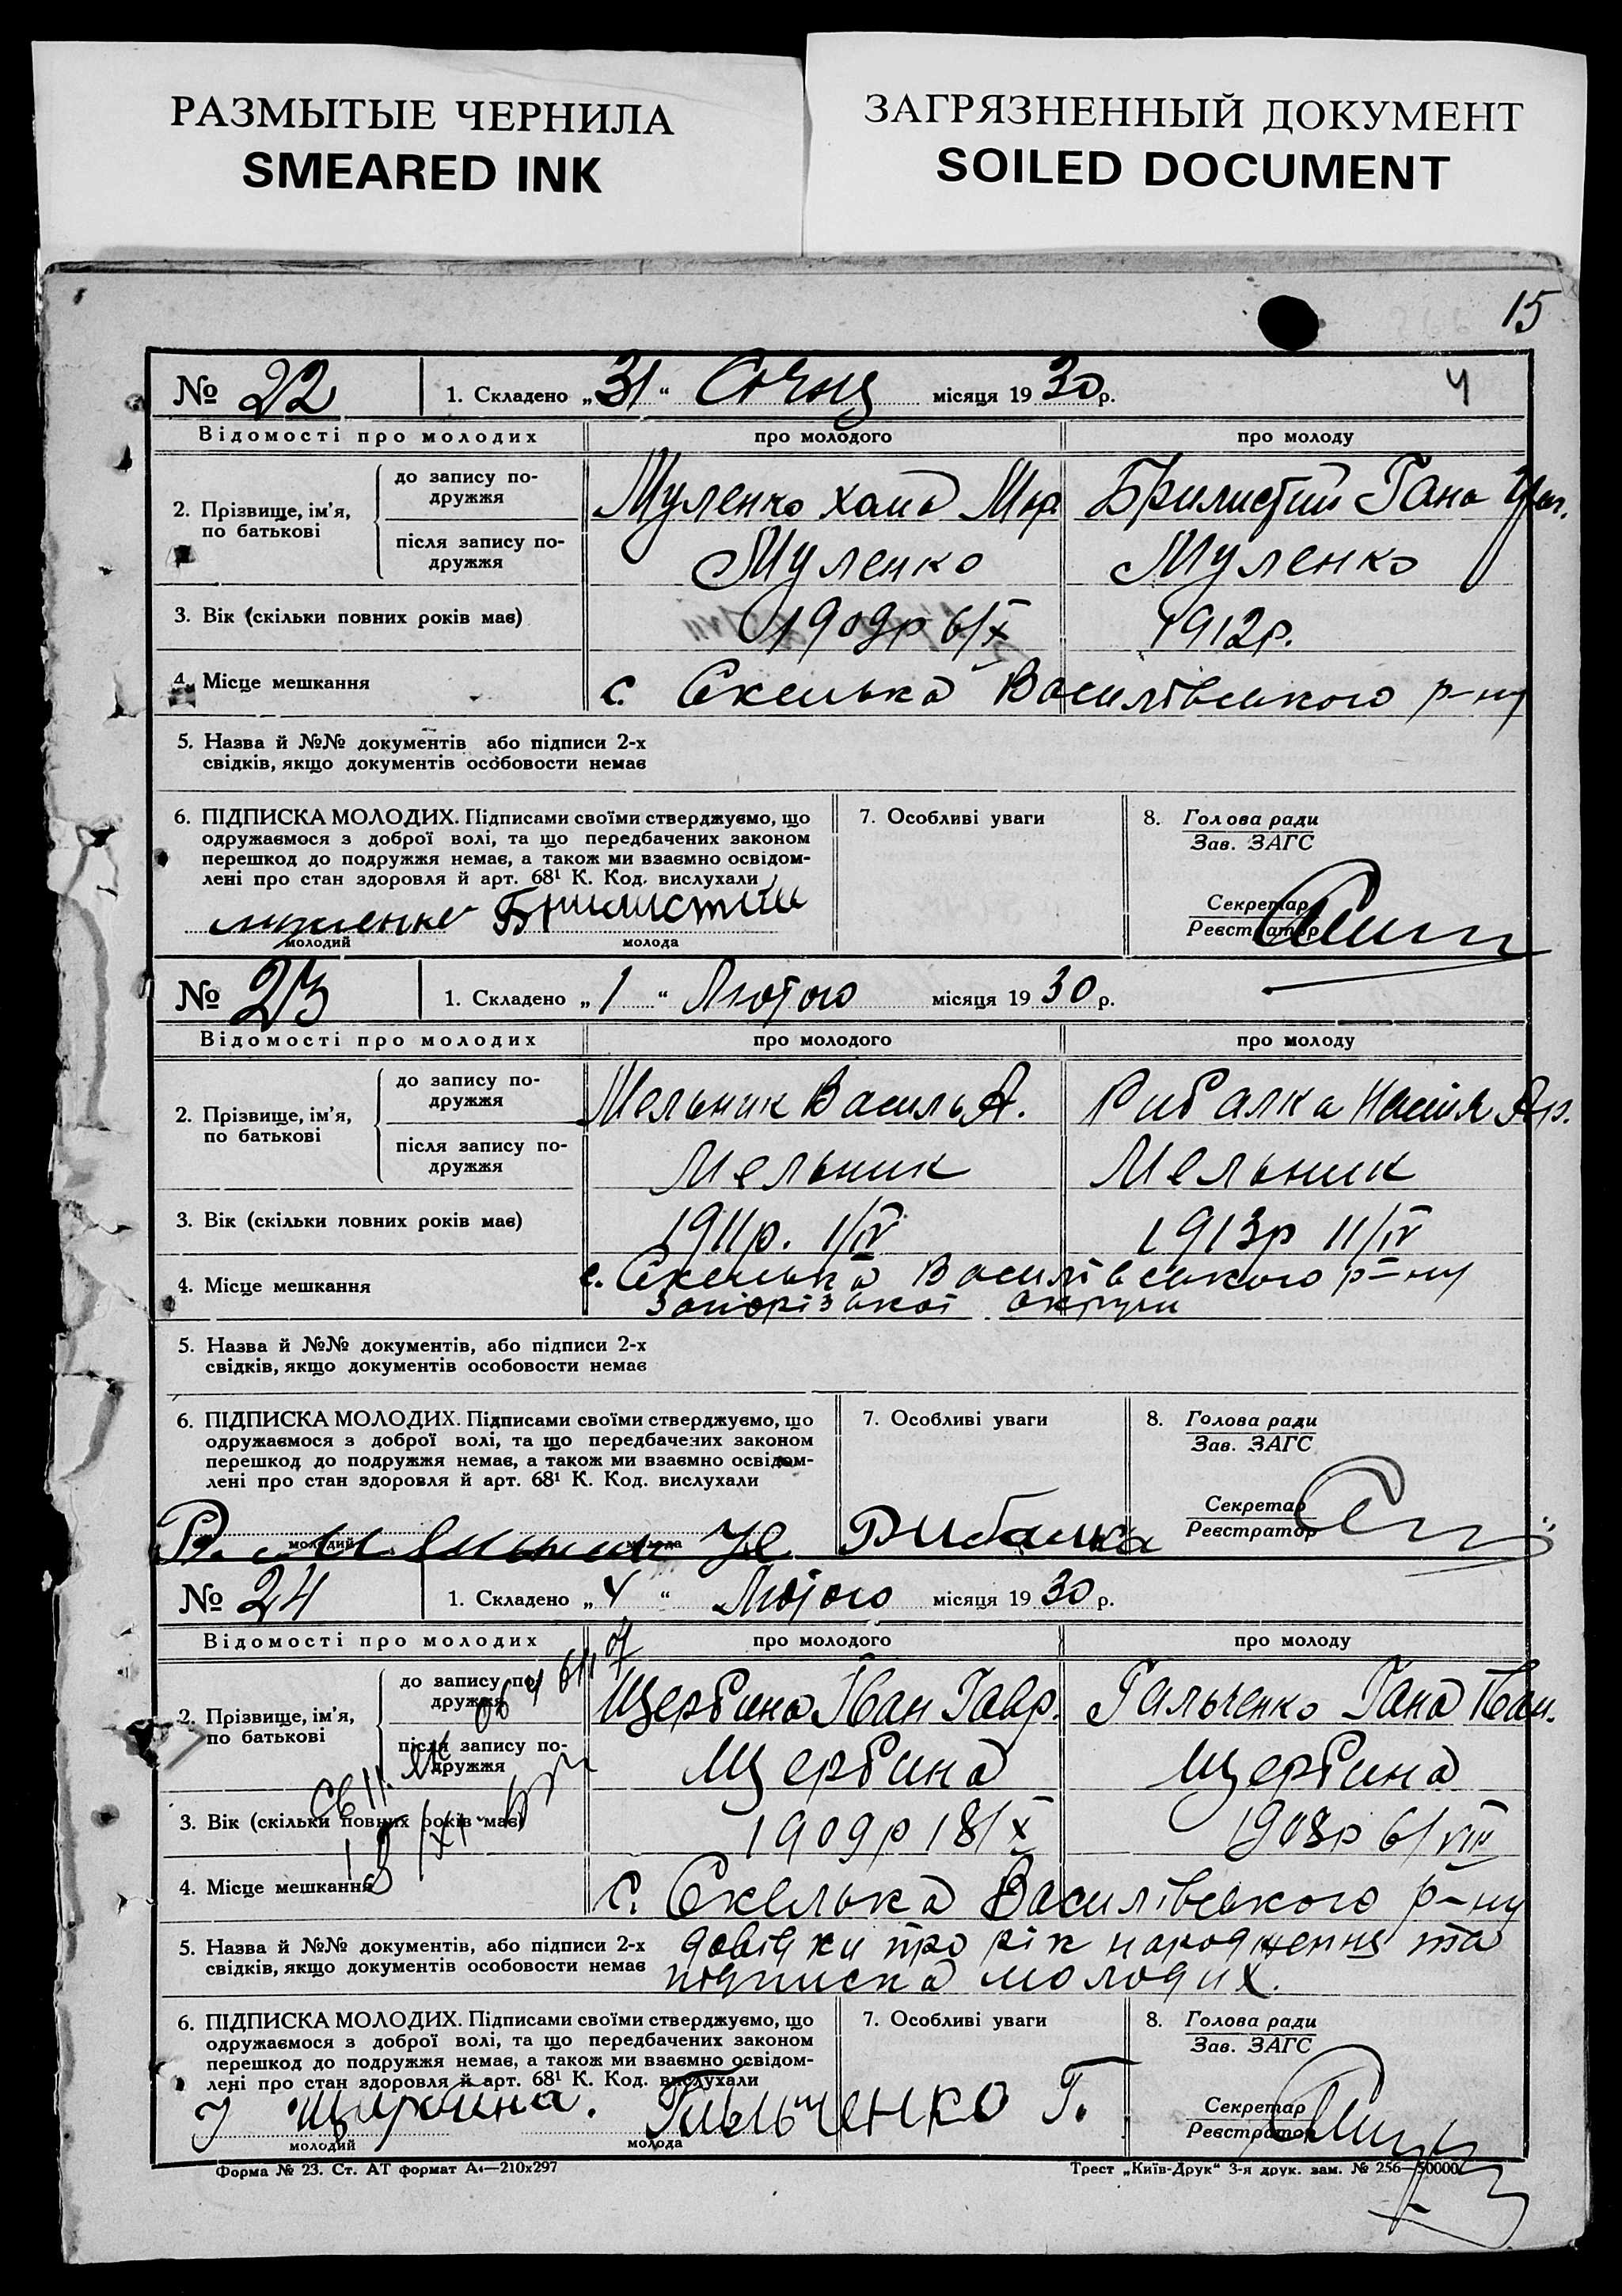 РАЗМЫТЫЕ ЧЕРНИЛА
SMEARED INK
ЗАГРЯЗНЕННЫЙ ДОКУМЕНТ
SOILED DOCUMENT
15
№ 22 1. Складено „31“ Січня місяця 1930 р. 4
Відомості про молодих про молодого про молоду
2. Прізвище, ім’я, по батькові
до запису подружжя Муленко Хома Брилистий Гана
після запису подружжя Муленко Муленко
3. Вік (скільки повних років має) 1909р 6/X 1912р.
4. Місце мешкання с. Скелька Василівського р-ну
5. Назва й №№ документів або підписи 2-х
свідків, якщо документів особовости немає
6. ПІДПИСКА МОЛОДИХ. Підписами своїми стверджуємо, що
одружаємося з доброї волі, та що передбачених законом
перешкод до подружжя немає, а також ми взаємно освідом-
лені про стан здоровля й арт. 68¹ К. Код. вислухали
муленко Брилистий
молодий молода
7. Особливі уваги
8. Голова ради
Зав. ЗАГС
Секретар
Реєстратор
№ 23 1. Складено „1“ Лютого місяця 1930 р.
Відомості про молодих про молодого про молоду
2. Прізвище, ім’я, по батькові
до запису подружжя Мельник Василь А. Рибалка Настя Ар.
після запису подружжя Мельник Мельник
3. Вік (скільки повних років має) 1911р. 1/IV 1913р 11/IV
4. Місце мешкання с. Скелька Василівського р-ну
Запорізької округи
5. Назва й №№ документів, або підписи 2-х
свідків, якщо документів особовости немає
6. ПІДПИСКА МОЛОДИХ. Підписами своїми стверджуємо, що
одружаємося з доброї волі, та що передбачених законом
перешкод до подружжя немає, а також ми взаємно освідом-
лені про стан здоровля й арт. 68¹ К. Код. вислухали
В. Мельник Н. Рибалка
молодий молода
7. Особливі уваги
8. Голова ради
Зав. ЗАГС
Секретар
Реєстратор
№ 24 1. Складено „4“ Лютого місяця 1930 р.
Відомості про молодих про молодого про молоду
2. Прізвище, ім’я, по батькові
до запису подружжя Щербина Іван Гавр. Гальченко Гана Іван.
після запису подружжя Щербина Щербина
3. Вік (скільки повних років має) 1909р 18/X 1908р 6/VIII
4. Місце мешкання с. Скелька Василівського р-ну
5. Назва й №№ документів, або підписи 2-х довідки про рік народження та
свідків, якщо документів особовости немає підписка молодих.
6. ПІДПИСКА МОЛОДИХ. Підписами своїми стверджуємо, що
одружаємося з доброї волі, та що передбачених законом
перешкод до подружжя немає, а також ми взаємно освідом-
лені про стан здоровля й арт. 68¹ К. Код. вислухали
І Щербина. Гальченко Г.
молодий молода
7. Особливі уваги
8. Голова ради
Зав. ЗАГС
Секретар
Реєстратор
Форма № 23. Ст. АТ формат А₄—210х297
Трест „Київ-Друк“ 3-я друк. зам. № 256—50000